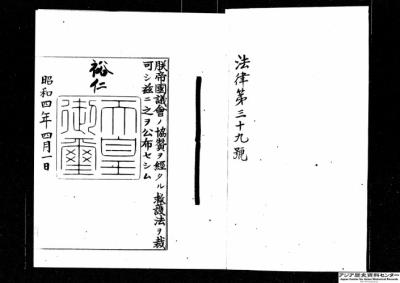 法律第三十九號
朕帝國議會ノ協賛ヲ經タル救護法ヲ裁
可シ玆ニ之ヲ公布セシム
裕仁
天皇
御璽
昭和四年四月一日
アジア歴史資料センター
Japan Center for Asian Historical Records